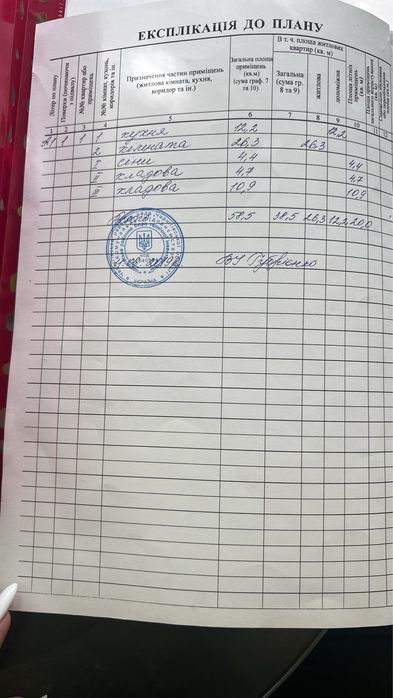 ЕКСПЛІКАЦІЯ ДО ПЛАНУ
Літер по плану
Поверхи (починаючи з підвалу)
№№ квартир або приміщень
№№ кімнат, кухонь, коридорів та ін.
Призначення частини приміщень (житлова кімната, кухня, коридор та ін.)
Загальна площа приміщень (кв.м) (сума граф. 7 та 10)
В т. ч. площа житлових квартир (кв. м)
Загальна (сума гр. 8 та 9)
житлова
допоміжна
1 2 3 4 5 6 7 8 9 10 11 12
1 1 1 кухня 12,2 12,2
2 кімната 26,3 26,3
I сіни 4,4 4,4
II кладова 4,7 4,7
III кладова 10,9 10,9
58,5 38,5 26,3 12,2 20,0
УКРАЇНА